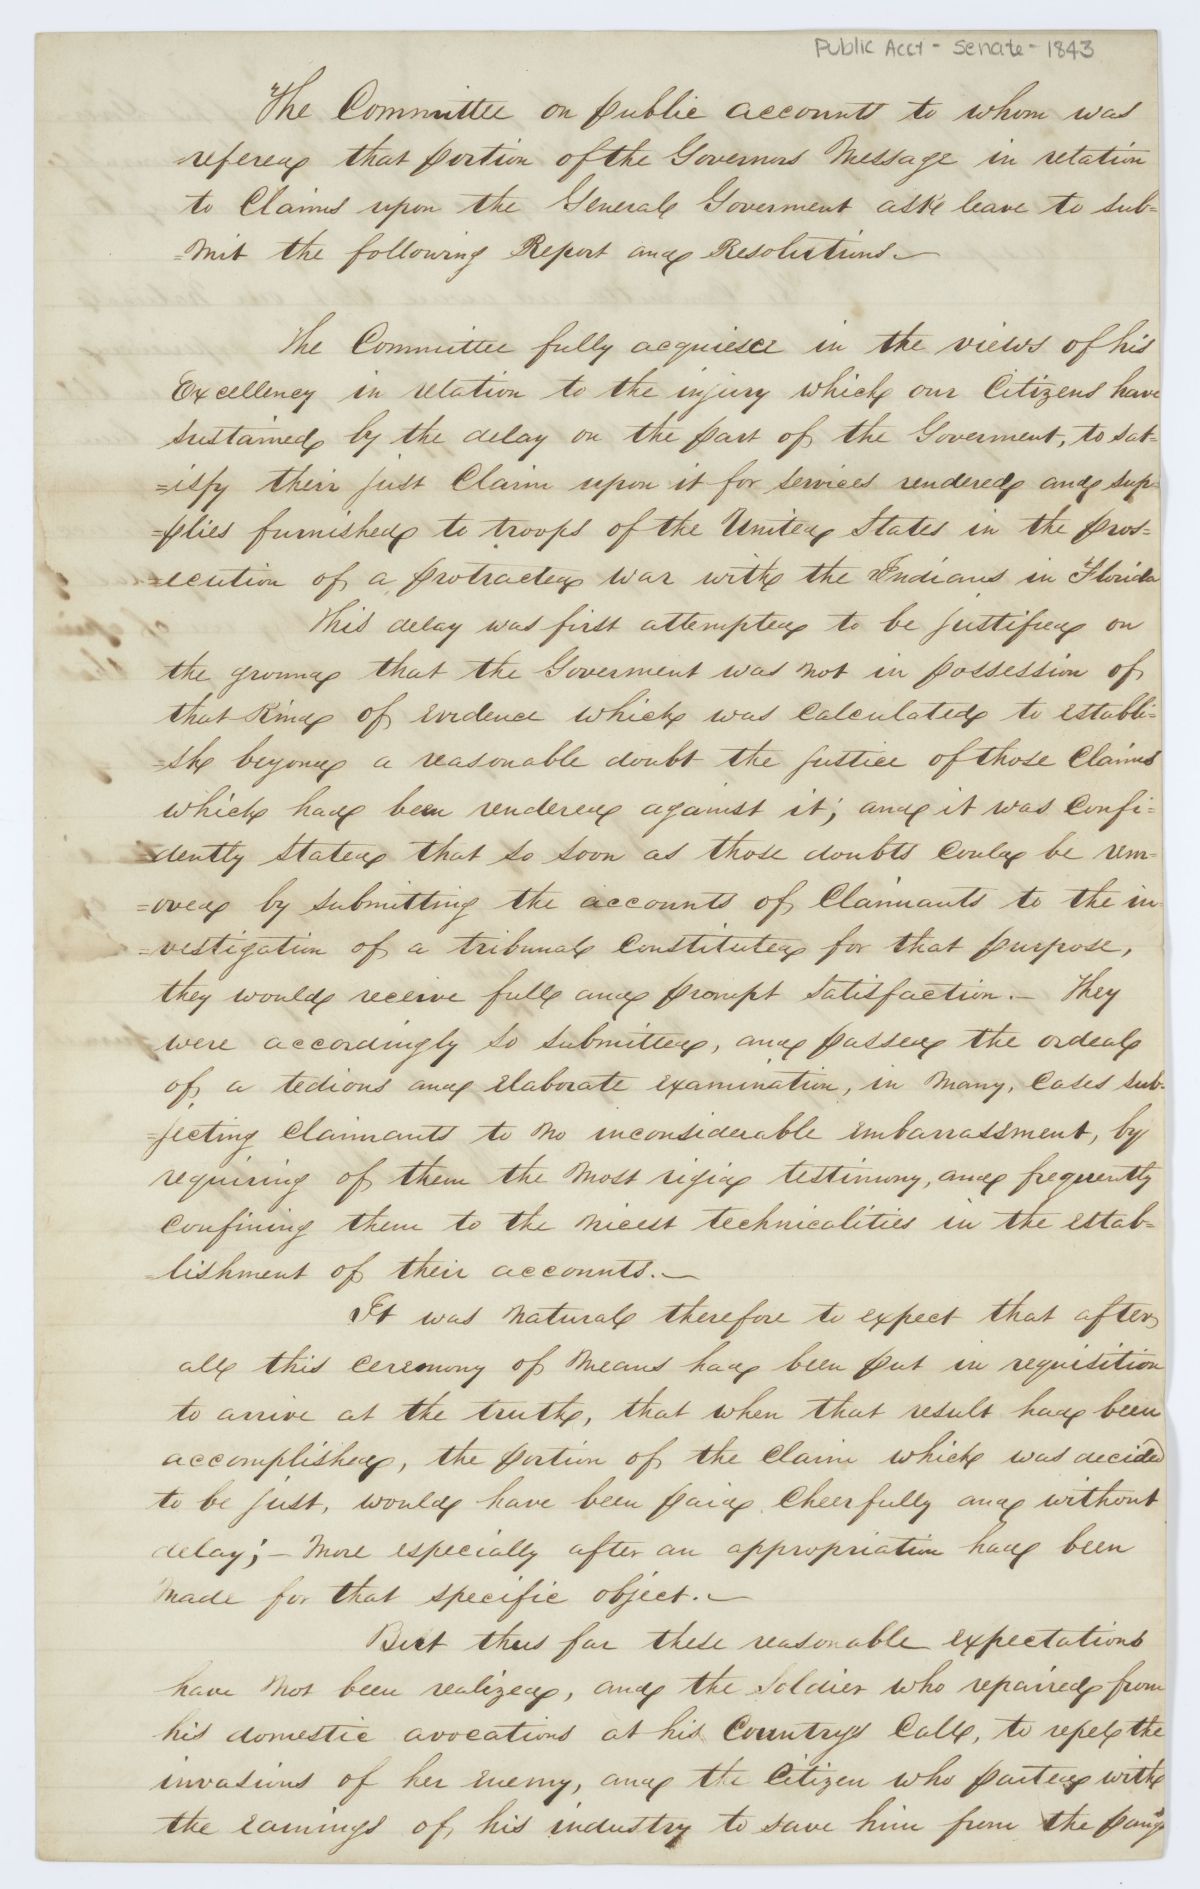 Public Acct - Senate - 1843
The Committee on public accounts to whom was
refered that portion of the Governors Message in relation
to Claims upon the General Goverment ask leave to sub=
=mit the following Report and Resolutions.—
The Committee fully acquiesce in the views of his
Excellency in relation to the injury which our Citizens have
sustained by the delay on the part of the Goverment, to sat=
=isfy their just Claim upon it for services rendered and sup=
=plies furnished to troops of the United States in the pros=
=ecution of a protracted war with the Indians in Florida
This delay was first attempted to be justified on
the ground that the Goverment was not in possession of
that Kind of evidence which was calculated to establi=
=sh beyond a reasonable doubt the justice of those Claims
which had been rendered against it; and it was confi=
=dently stated that so soon as those doubts could be rem=
=oved by submitting the accounts of Claimants to the in=
=vestigation of a tribunal constituted for that purpose,
they would receive full and prompt satisfaction.— They
were accordingly so submitted, and passed the ordeal
of a tedious and elaborate examination, in many, cases sub=
=jecting claimants to no inconsiderable embarrassment, by
requiring of them the most rigid testimony, and frequently
confining them to the nicest technicalities in the estab=
=lishment of their accounts.—
It was natural therefore to expect that after
all this ceremony of means had been put in requisition
to arrive at the truth, that when that result had been
accomplished, the portion of the claim which was decided
to be just, would have been paid cheerfully and without
delay; — more especially after an appropriation had been
made for that specific object.—
But thus far these reasonable expectations
have not been realized, and the Soldier who repaired from
his domestic avocations at his Countrys Call, to repel the
invasions of her enemy, and the Citizen who parted with
the earnings of his industry to save him from the pangs